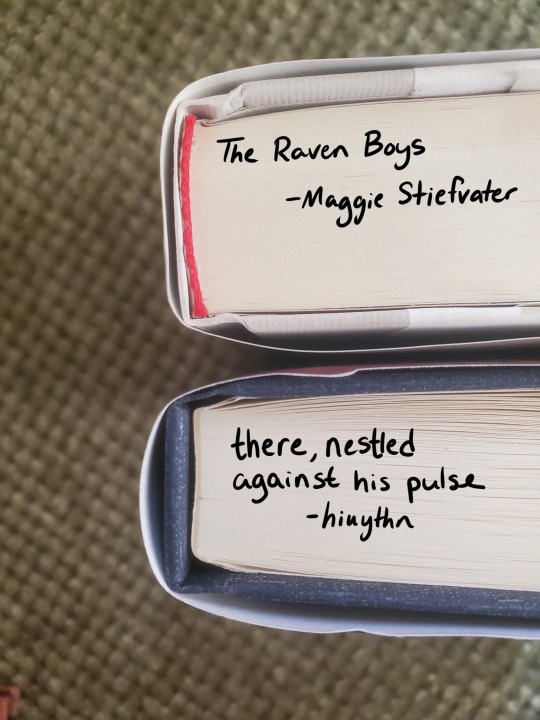 The Raven Boys
-Maggie Stiefvater
there, nestled
against his pulse
-hiuythn